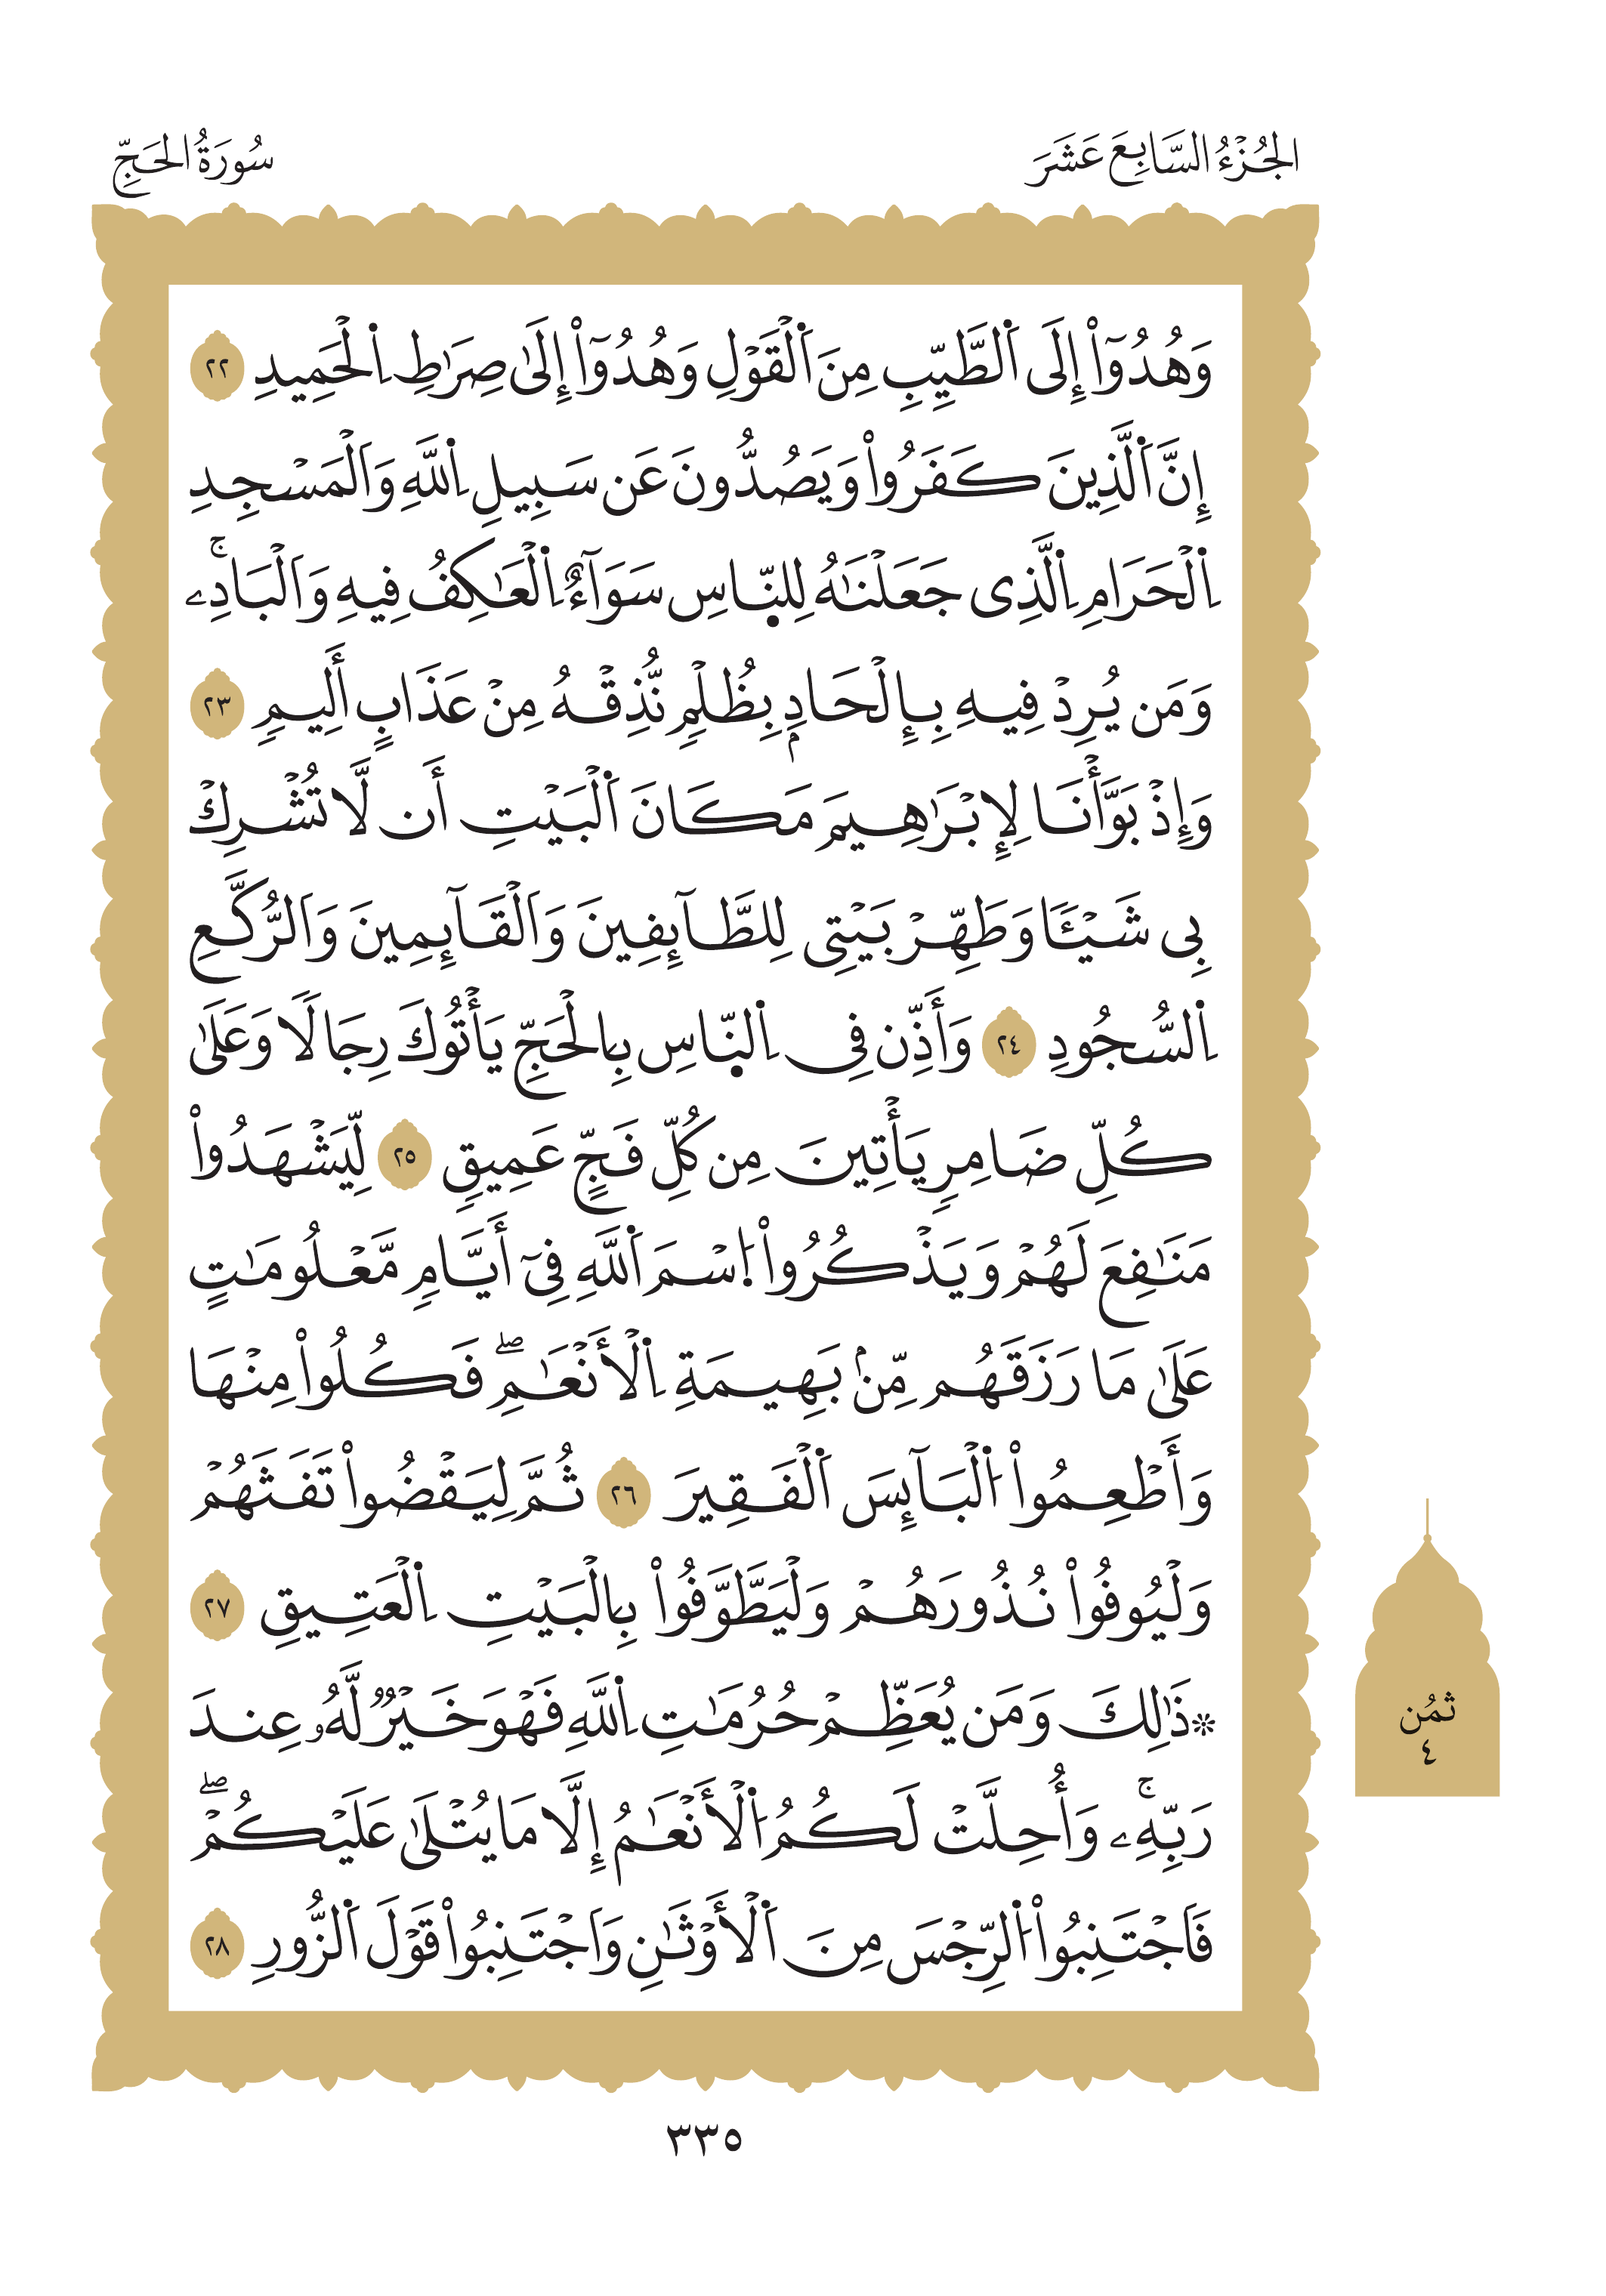 الجُزْءُ السَّابِعَ عَشَرَ
سُورَةُ الحَجِّ
وَهُدُوٓاْ إِلَى اَ۬لطَّيِّبِ مِنَ اَ۬لْقَوْلِ وَهُدُوٓاْ إِلَىٰ صِرَٰطِ اِ۬لْحَمِيدِ ٢٢
إِنَّ اَ۬لَّذِينَ كَفَرُواْ وَيَصُدُّونَ عَن سَبِيلِ اِ۬للَّهِ وَالْمَسْجِدِ
اِ۬لْحَرَامِ اِ۬لَّذِى جَعَلْنَٰهُ لِلنَّاسِ سَوَآءٌ اِ۬لْعَٰكِفُ فِيهِ وَالْبَادِۦۚ
وَمَن يُرِدْ فِيهِ بِإِلْحَادِۢ بِظُلْمٍ نُّذِقْهُ مِنْ عَذَابٍ أَلِيمٍ ٢٣
وَإِذْ بَوَّأْنَا لِإِبْرَٰهِيمَ مَكَانَ اَ۬لْبَيْتِ أَن لَّا تُشْرِكْ
بِى شَيْـًٔا وَطَهِّرْ بَيْتِى لِلطَّآئِفِينَ وَالْقَآئِمِينَ وَالرُّكَّعِ
اِ۬لسُّجُودِ ٢٤ وَأَذِّن فِى اِ۬لنَّاسِ بِالْحَجِّ يَأْتُوكَ رِجَالًا وَعَلَىٰ
كُلِّ ضَامِرٍ يَأْتِينَ مِن كُلِّ فَجٍّ عَمِيقٍ ٢٥ لِّيَشْهَدُواْ
مَنَٰفِعَ لَهُمْ وَيَذْكُرُواْ اُ۪سْمَ اَ۬للَّهِ فِىٓ أَيَّامٍ مَّعْلُومَٰتٍ
عَلَىٰ مَا رَزَقَهُم مِّنۢ بَهِيمَةِ اِ۬لْأَنْعَٰمِۖ فَكُلُواْ مِنْهَا
وَأَطْعِمُواْ اُ۬لْبَآئِسَ اَ۬لْفَقِيرَ ٢٦ ثُمَّ لِيَقْضُواْ تَفَثَهُمْ
وَلْيُوفُواْ نُذُورَهُمْ وَلْيَطَّوَّفُواْ بِالْبَيْتِ اِ۬لْعَتِيقِ ٢٧
۞ذَٰلِكَ وَمَن يُعَظِّمْ حُرُمَٰتِ اِ۬للَّهِ فَهْوَ خَيْرٌ لَّهُۥ عِندَ
رَبِّهِۦۚ وَأُحِلَّتْ لَكُمُ اُ۬لْأَنْعَٰمُ إِلَّا مَا يُتْلَىٰ عَلَيْكُمْۖ
فَاجْتَنِبُواْ اُ۬لرِّجْسَ مِنَ اَ۬لْأَوْثَٰنِ وَاجْتَنِبُواْ قَوْلَ اَ۬لزُّورِ ٢٨
ثمُن
٤
٣٣٥